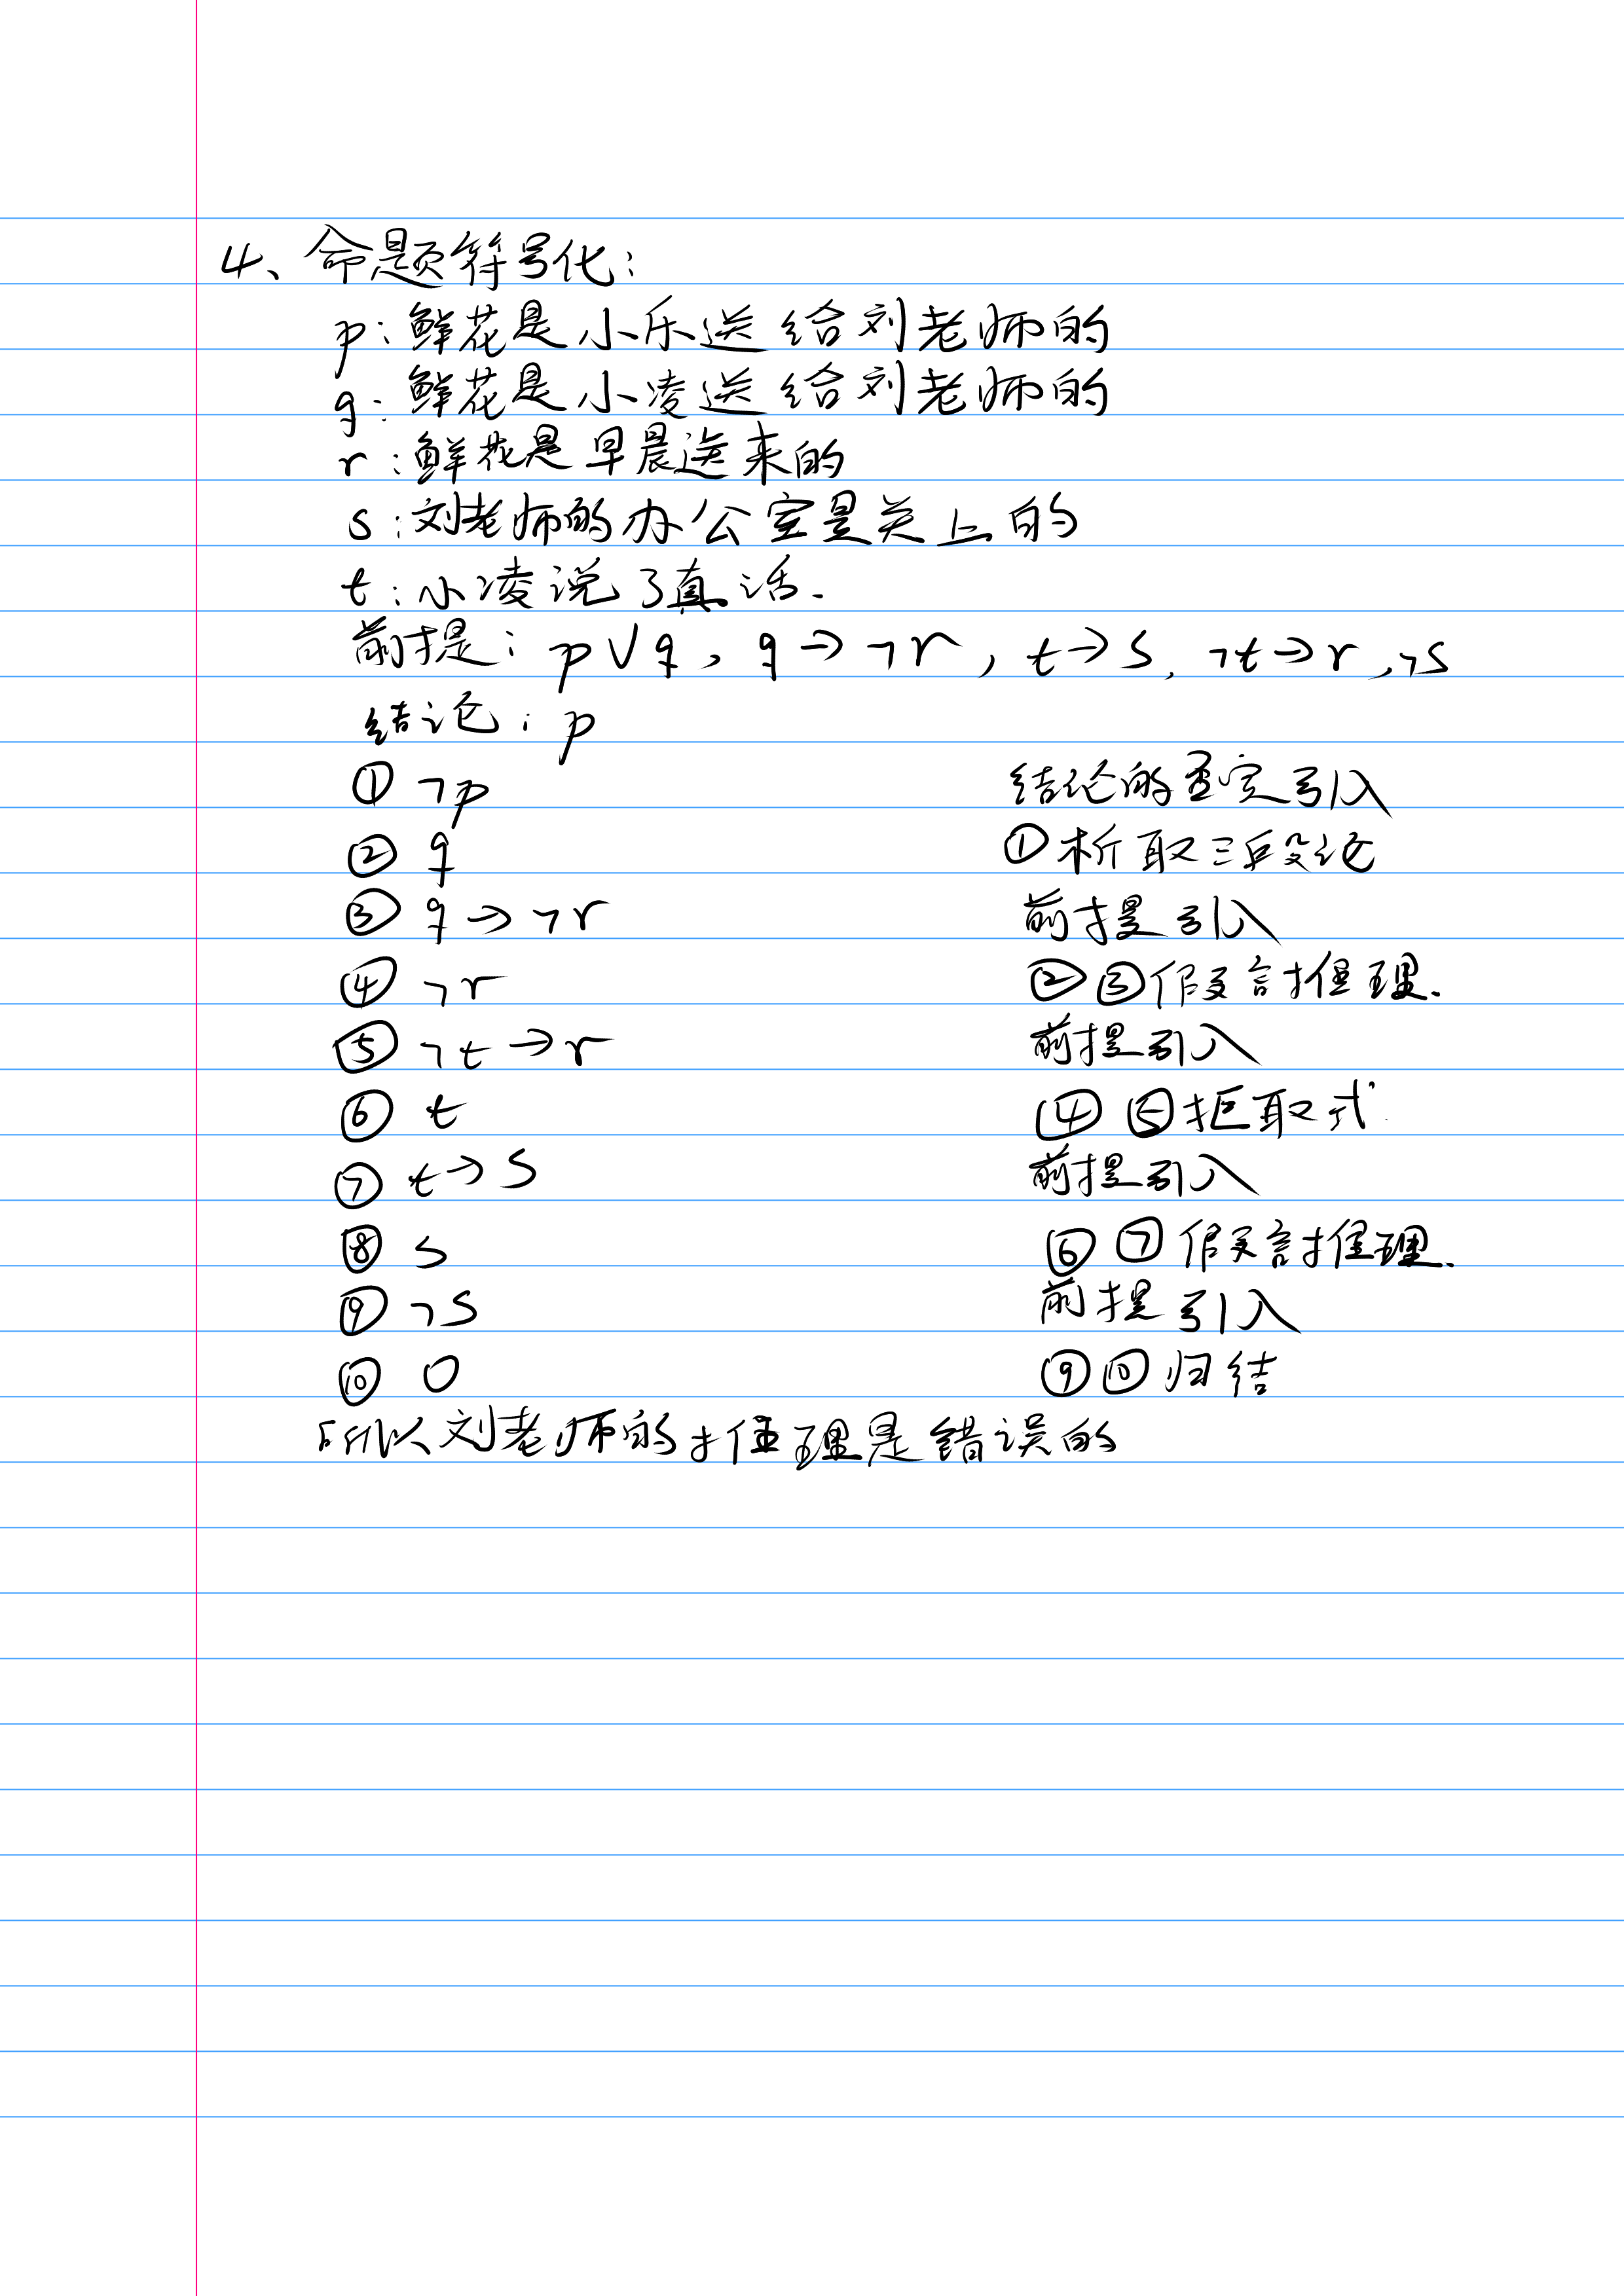 4、命题符号化：
p：鲜花是小乐送给刘老师的
q：鲜花是小凌送给刘老师的
r：鲜花是早晨送来的
s：刘老师的办公室是关上的
t：小凌说了真话.
前提：p∨q，q→¬r，t→s，¬t→r，¬s
结论：p
① ¬p 结论的否定引入
② q ①析取三段论
③ q→¬r 前提引入
④ ¬r ②③假言推理.
⑤ ¬t→r 前提引入
⑥ t ④⑤拒取式.
⑦ t→s 前提引入
⑧ s ⑥⑦假言推理.
⑨ ¬s 前提引入
⑩ 0 ⑨⑩归结
所以刘老师的推理是错误的